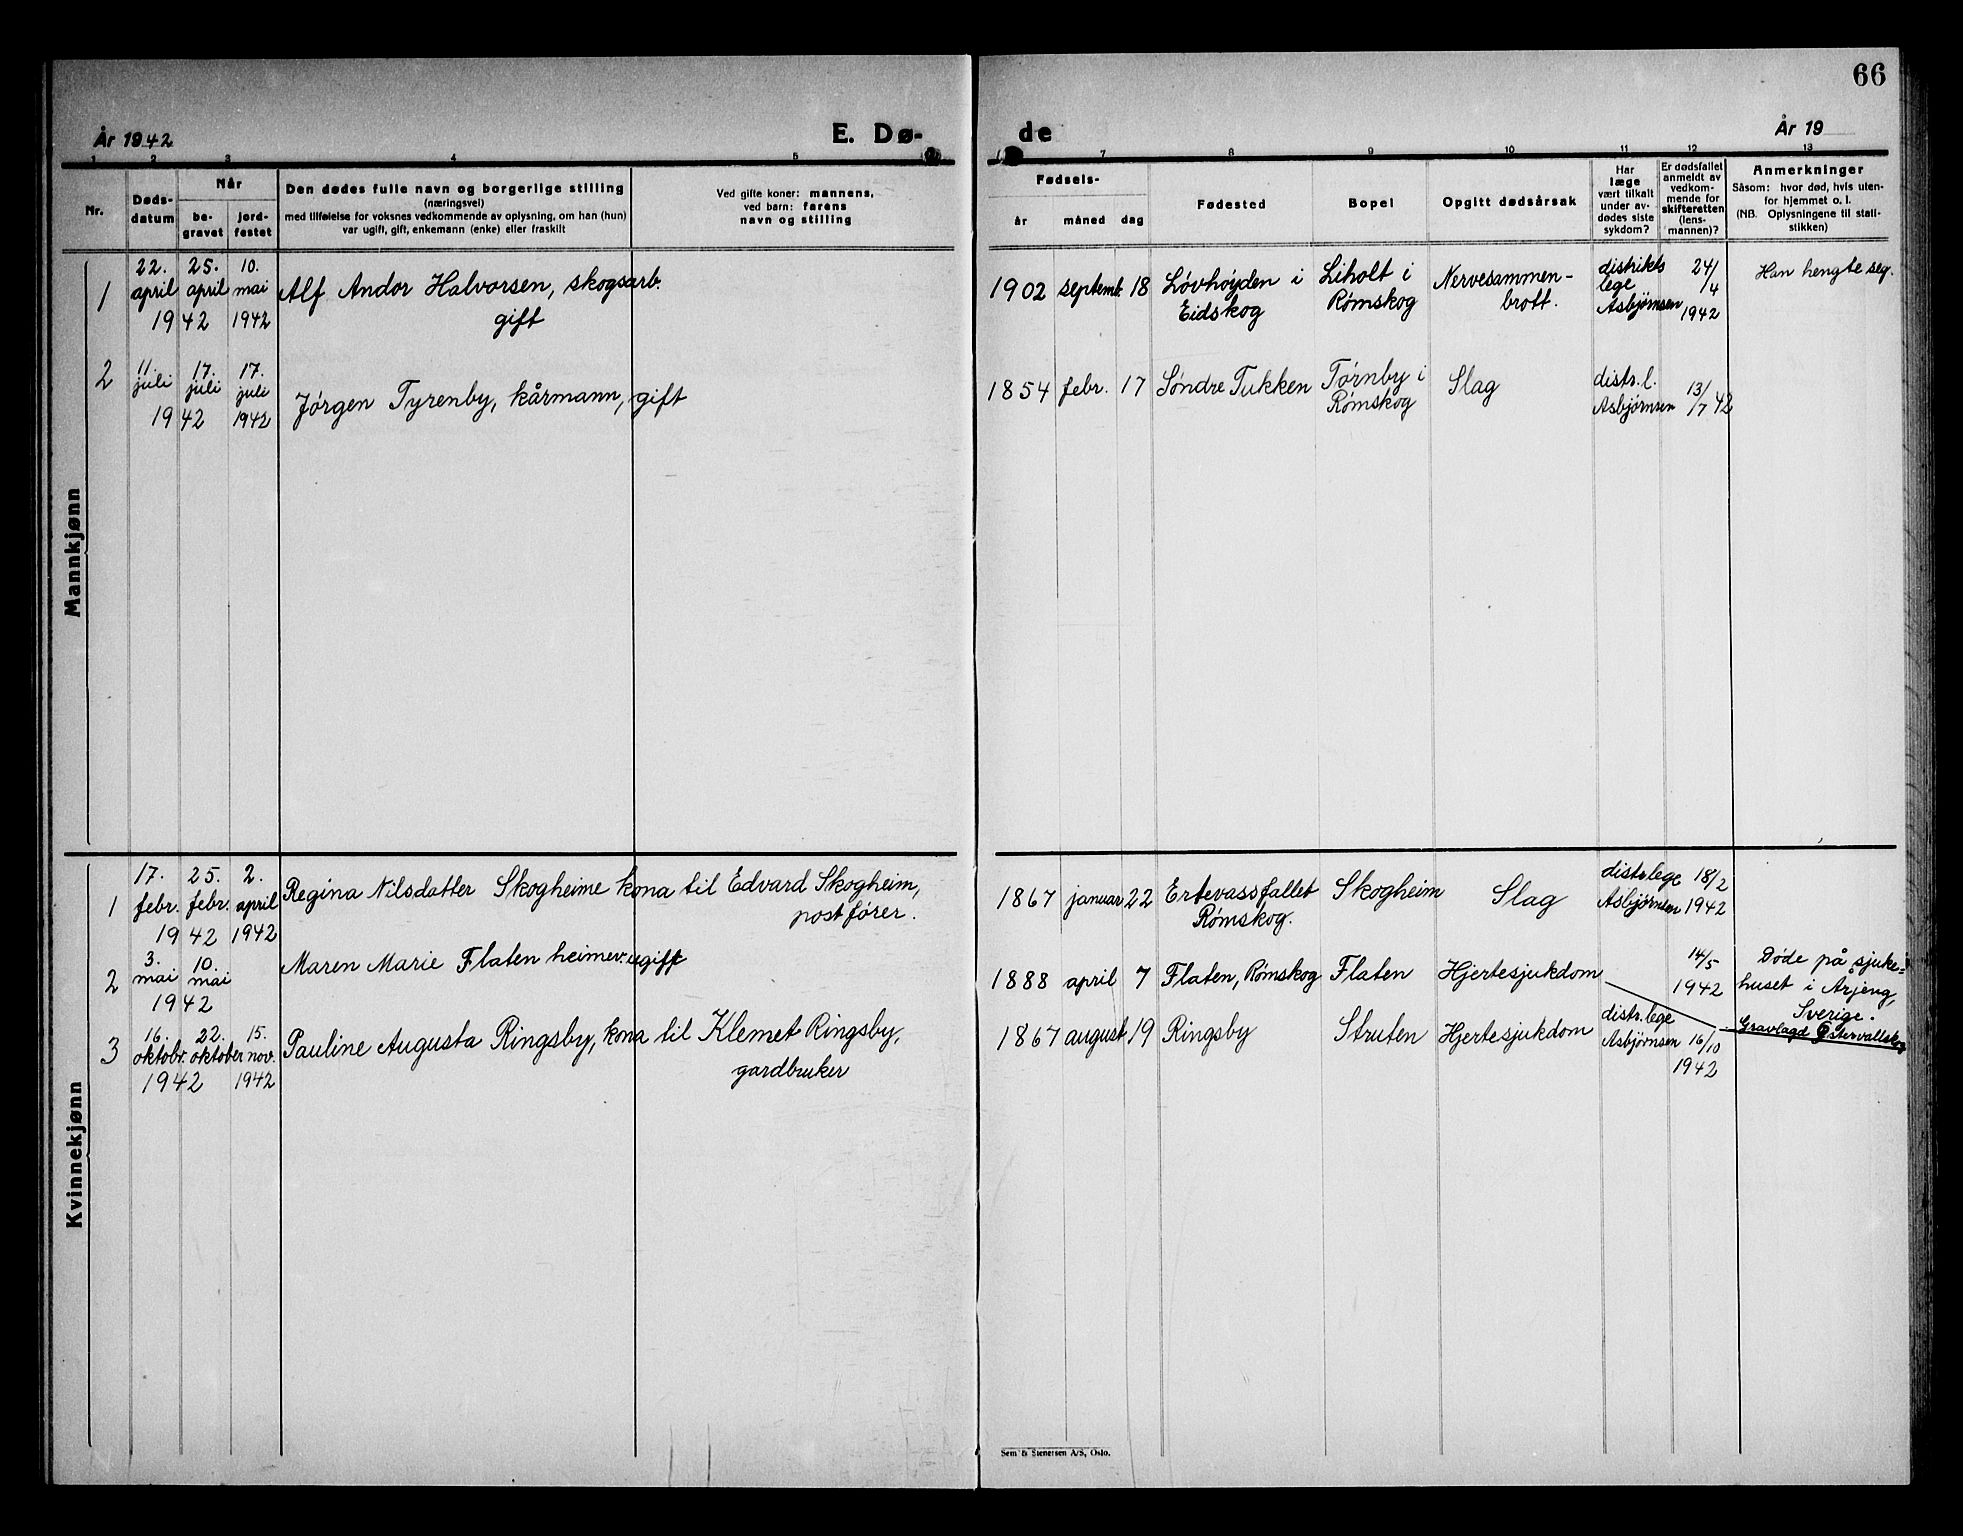 66
År 1942
E. Dø-
de
År 19
1 2 3 4 5 6
7 8 9 10 11 12 13
Nr.
Døds-
datum
Når
be-
gravet
jord-
festet
Den dødes fulle navn og borgerlige stilling
(næringsvei)
med tilføielse for voksnes vedkommende av oplysning, om han (hun)
var ugift, gift, enkemann (enke) eller fraskilt
Ved gifte koner: mannens,
ved barn: farens
navn og stilling
Fødsels-
år måned dag
Fødested
Bopel
Opgitt dødsårsak
Har
læge
vært tilkalt
under av-
dødes siste
sykdom?
Er dødsfallet
anmeldt av
vedkom-
mende for
skifteretten
(lens-
mannen)?
Anmerkninger
Såsom: hvor død, hvis uten-
for hjemmet o. l.
(NB. Oplysningene til stati-
stikken)
Mannkjønn
1
22.
april
25.
april
1942
10.
mai
1942
Alf Andor Halvorsen, skogsarb.
gift
1902 septemb. 18
Løvhøyden i
Eidskog
Liholt i
Rømskog
Nervesammen-
brott.
distrikts
lege
Asbjørnsen
24/
/4
1942
Han hengte seg.
2
11.
juli
17.
juli
1942
17.
juli
1942
Jørgen Tyrenby, kårmann, gift
1854 febr. 17
Søndre Tukken
Tørnby i
Rømskog
Slag
distr.l.
Asbjørnsen
13/
/7 42
Kvinnekjønn
1
17.
febr.
25.
febr.
1942
2.
april
1942
Regina Nilsdatter Skogheime kona til Edvard Skogheim,
postfører.
1867 januar 22
Ertevassfallet
Rømskog.
Skogheim
Slag
distr.lege
Asbjørnsen
18/2
1942
2
3.
mai
10.
mai
1942
Maren Marie Flaten heimev. ugift
1888 april 7
Flaten, Rømskog
Flaten
Hjertesjukdom
14/5
1942
Døde på sjuke-
huset i Årjeng,
Sverige.
Gravlagd Østervallskog
3
16.
oktobr.
22.
oktober
1942
15.
nov.
1942
Pauline Augusta Ringsby, kona til Klemet Ringsby,
gardbruker
1867 august 19
Ringsby
Struten
Hjertesjukdom
distr.lege
Asbjørnsen
16/10
1942
Sem & Stenersen A/S, Oslo.